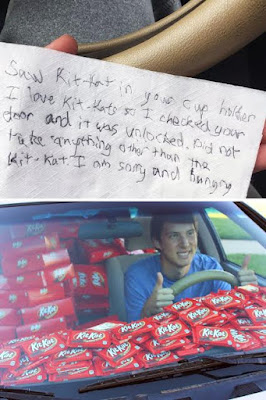 Saw Kit-Kat in your cup holder
I love Kit-Kats so I checked your
door and it was unlocked. Did not
take anything other than the
Kit-Kat. I am sorry and hungry
KitKat
KitKat
KitKat
KitKat
KitKat
KitKat
KitKat
KitKat